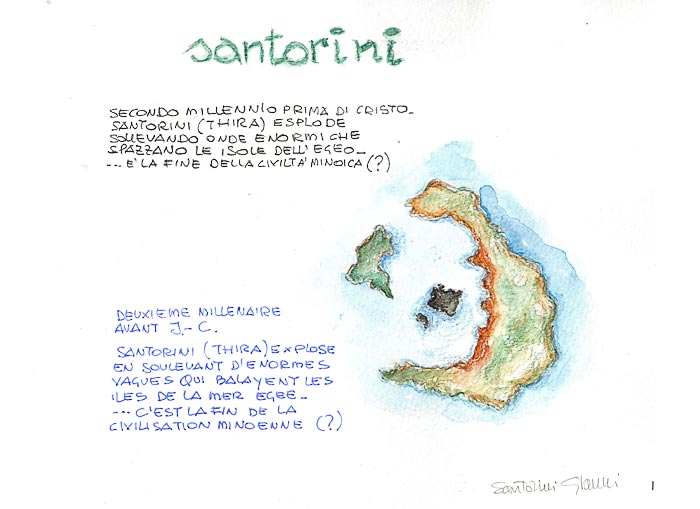 santorini
SECONDO MILLENNIO PRIMA DI CRISTO_
SANTORINI (THIRA) ESPLODE
SOLLEVANDO ONDE ENORMI CHE
SPAZZANO LE ISOLE DELL'EGEO_
... E' LA FINE DELLA CIVILTA' MINOICA (?)
DEUXIEME MILLENAIRE
AVANT J.-C.
SANTORINI (THIRA) EXPLOSE
EN SOULEVANT D'ENORMES
VAGUES QUI BALAYENT LES
ILES DE LA MER EGEE_
... C'EST LA FIN DE LA
CIVILISATION MINOENNE (?)
Santorini Gianni
1